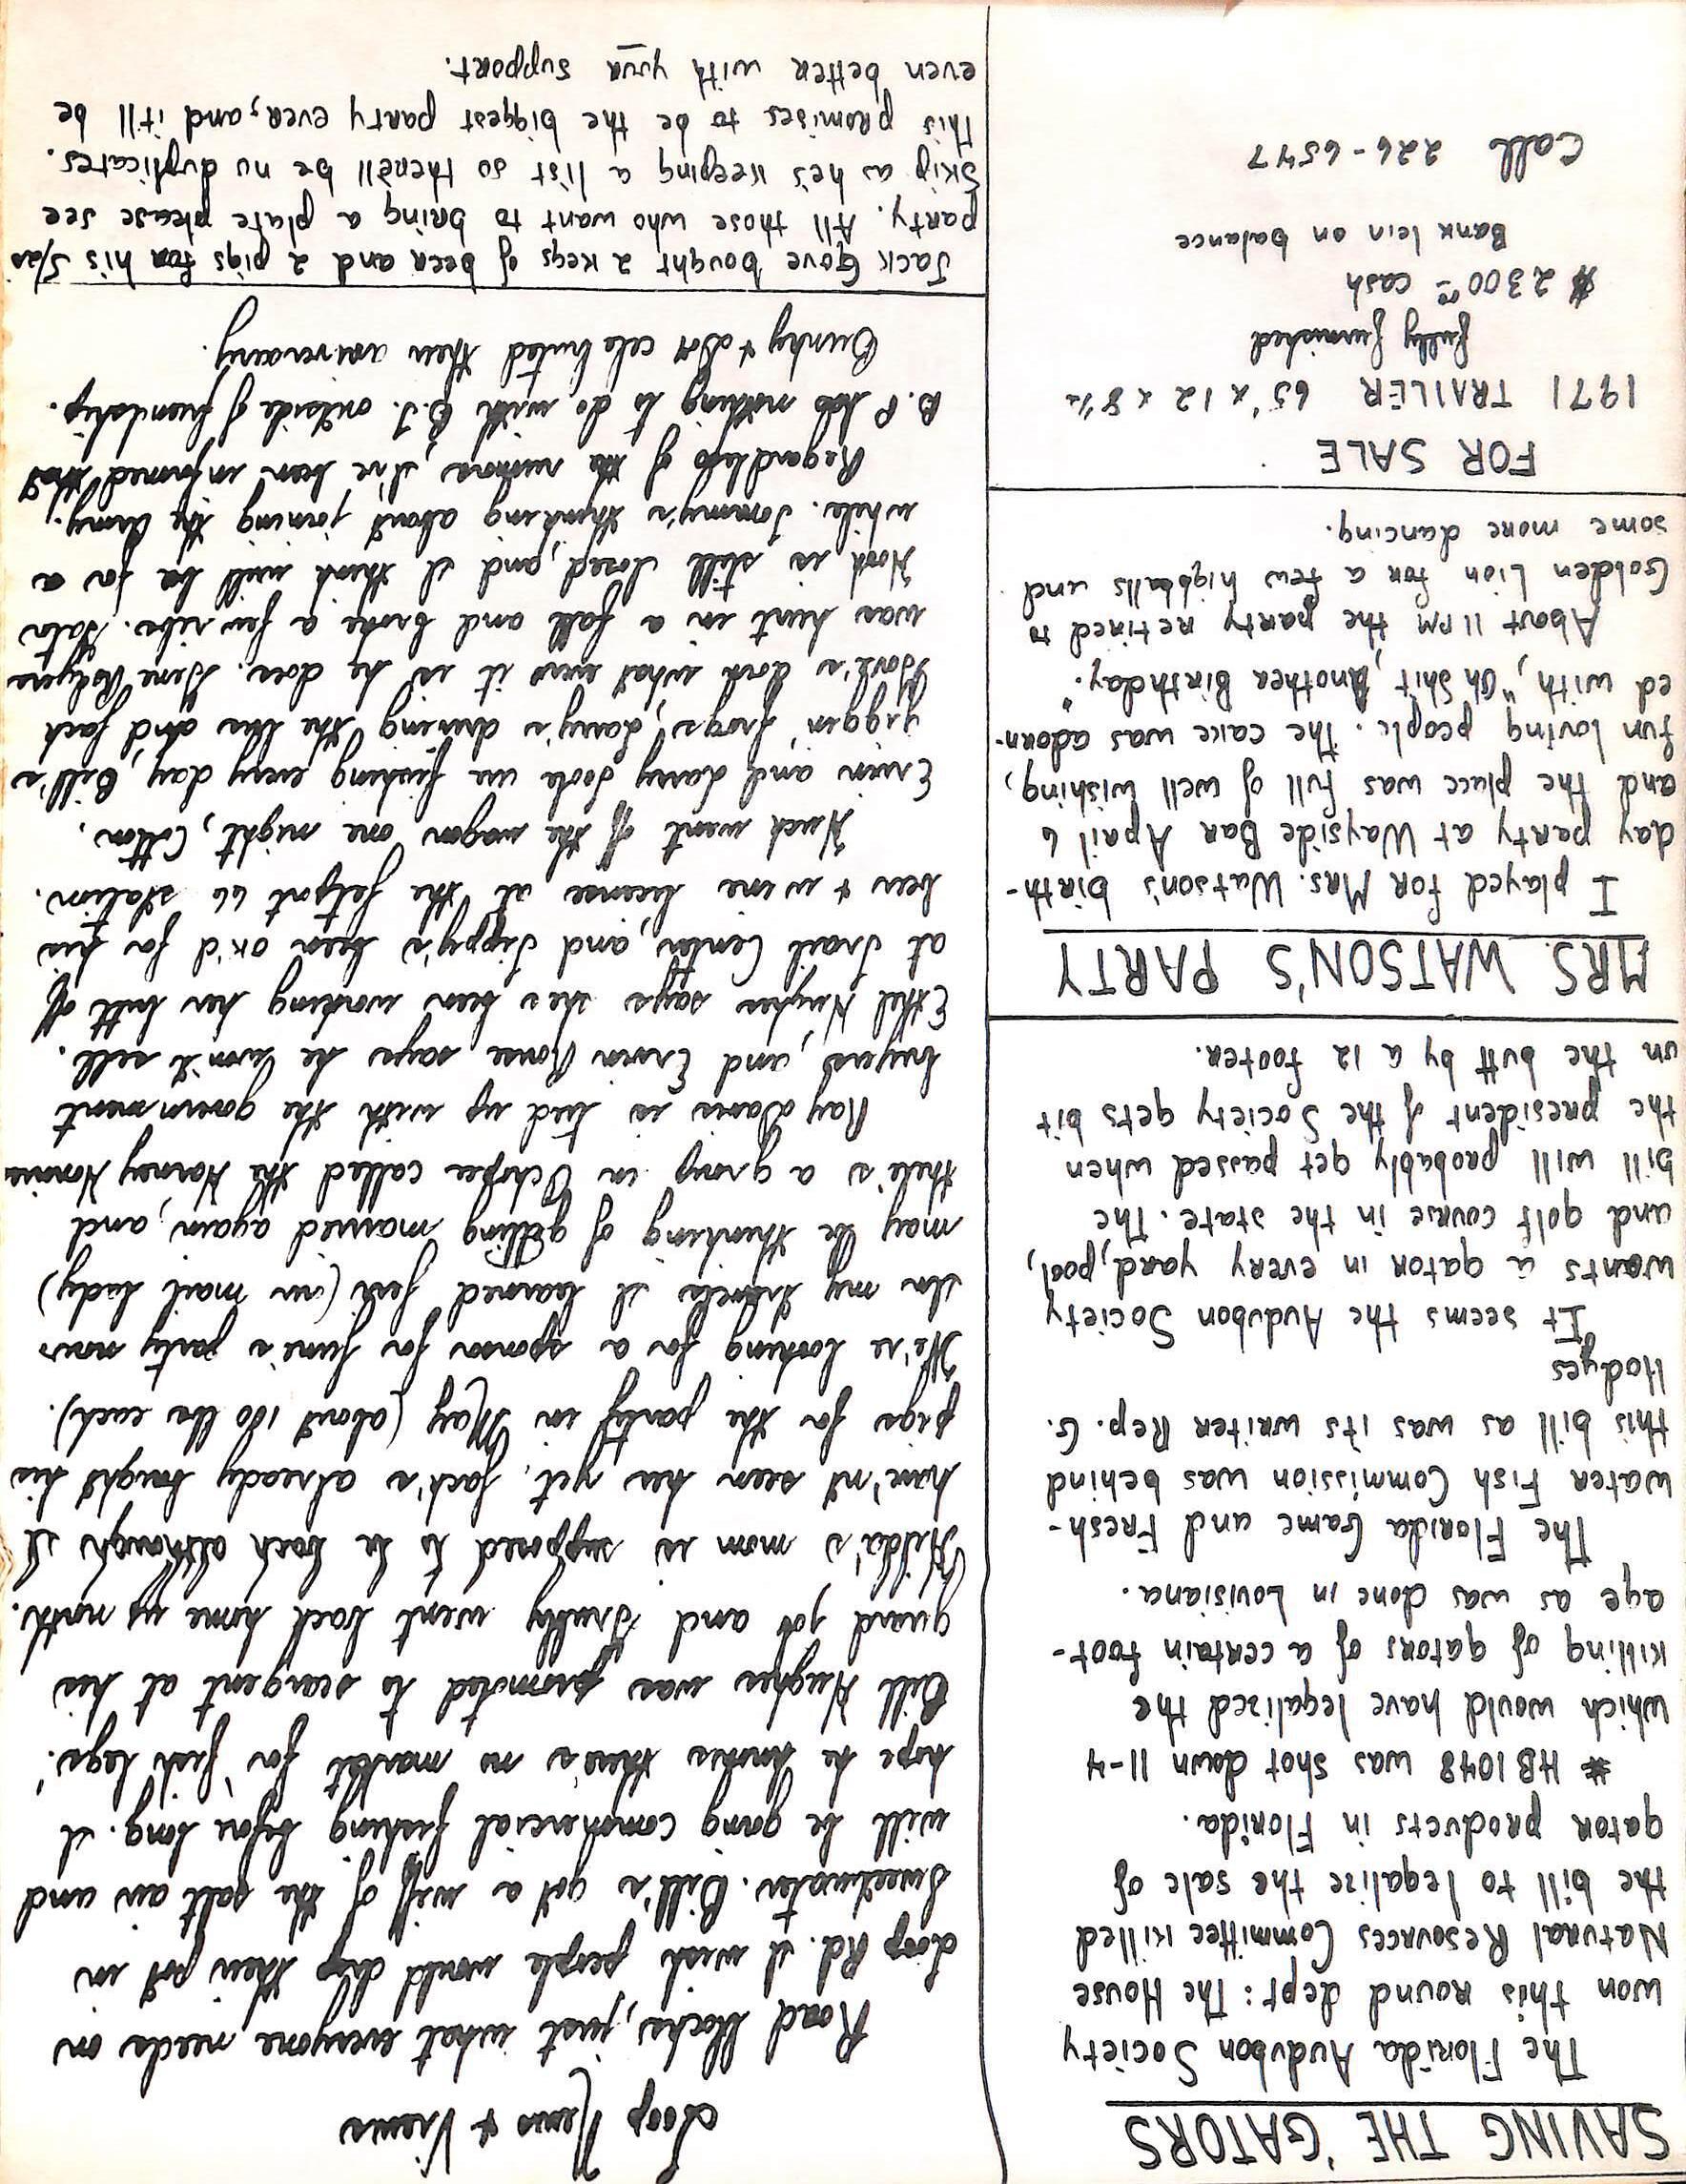 SAVING THE 'GATORS
The Florida Audubon Society
won this round dept: The House
Natural Resources Committee killed
the bill to legalize the sale of
gator products in Florida.
* HB 1048 was shot down 11-4
which would have legalized the
killing of gators of a certain foot-
age as was done in Louisiana.
The Florida Game and Fresh-
water Fish Commission was behind
this bill as was its writer Rep. G.
Hodges
It seems the Audubon Society
wants a gator in every yard, pool,
and golf course in the state. The
bill will probably get passed when
the president of the Society gets bit
on the butt by a 12 footer.
MRS. WATSON'S PARTY
I played for Mrs. Watson's birth-
day party at Wayside Bar April 6
and the place was full of well wishing,
fun loving people. The cake was adorn-
ed with, "Oh Shit, Another Birthday".
About 11 PM the party retired to
Golden Lion for a few highballs and
some more dancing.
FOR SALE
1971 TRAILER 65' x 12 x 8 1/2
fully furnished
$2300.00 - cash
Bank lein on balance
Call 226-6547
Loop News & Views
Road blocks, just what everyone needs on
Loop Rd. I wish people would drop their pot in
Sweetwater. Bill's got a wiff of the salt air and
will be going commercial fishing before long. I
hope he knows there's no market for 'fish legs'.
Bill Hughes was promoted to seargent at his
guard job and Trully went back home up north.
Hilda's mom is supposed to be back although I
have'nt seen her yet. Jack's already bought his
pigs for the party in May (about 100 lbs each).
We're looking for a sponsor for June's party now
In my travels I learned Jeri (our mail lady)
may be thinking of getting married again, and
there's a group in Ochopee called the Horney Hornies
Ray Dann is tied up with the government
buyers, and Ervin Rouse says he won't sell.
Ethel Hughes says she's been working her butt off
at Trail Center, and Tippy's been ok'd for his
beer & wine license at the Jetport 66 station.
Huck went off the wagon one night, Cotton,
Ervin and Larry Poole are fishing every day, Bill's
giggin' frogs, Larry's driving the bus and Jack
Gove's doin what ever it is he does. Gene Rodgers
was hurt in a fall and broke a few ribs. Gator
Hook is still closed, and I think will be for a
while. Tommy's thinking about joining the Army.
Regardless of the rumors, I've been informed that
B.P. has nothing to do with B.J. outside of friendship.
Bunky & Dot celebrated their aniversary.
Jack Gove bought 2 kegs of beer and 2 pigs for his 5/20
party. All those who want to bring a plate please see
Skip as he's keeping a list so there'll be no duplicates.
This promises to be the biggest party ever, and it'll be
even better with your support.